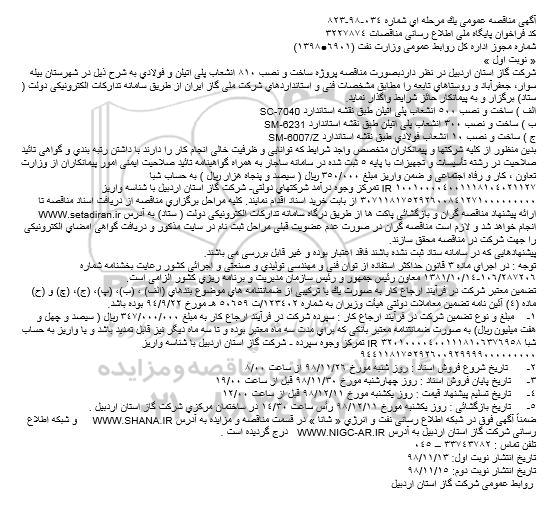 آگهی مناقصه عمومی یك مرحله ای شماره ۰۳۴-۹۸-۸۲۳
کد فراخوان پایگاه ملی اطلاع رسانی مناقصات ۳۲۲۷۸۷۴
شماره مجوز اداره کل روابط عمومی وزارت نفت (۶۹۰۱●۱۳۹۸)
« نوبت اول »
شرکت گاز استان اردبیل در نظر داردبصورت مناقصه پروژه ساخت و نصب ۸۱۰ انشعاب پلی اتیلن و فولادي به شرح ذیل در شهرستان بیله
سوار، جعفرآباد و روستاهای تابعه را مطابق مشخصات فنی و استانداردهای شرکت ملی گاز ایران از طریق سامانه تدارکات الکترونیکی دولت (
ستاد) برگزار و به پیمانکار حائز شرایط واگذار نماید.
الف ) ساخت و نصب ۵۰۰ انشعاب پلی اتیلن طبق نقشه استاندارد SC-7040
ب ) ساخت و نصب ۳۰۰ انشعاب پلی اتیلن طبق نقشه استاندارد SM-6231
ج ) ساخت و نصب ۱۰ انشعاب فولادي طبق نقشه استاندارد SM-6007/Z
بدین منظور از کلیه شرکتها و پیمانکاران متخصص واجد شرایط که توانایی و ظرفیت خالی انجام کار را دارند با داشتن رتبه بندي و گواهی تائید
صلاحیت در رشته تأسیسات و تجهیزات با پایه ۵ ثبت شده در سامانه ساجار به همراه گواهینامه تائید صلاحیت ایمنی امور پیمانکاران از وزارت
تعاون ، کار و رفاه اجتماعی و ضمن واریز مبلغ ۳۵۰/۰۰۰ ریال ( سیصد و پنجاه هزار ریال ) به حساب شبا
IR تمرکز وجوه درآمد شرکتهای دولتی- شرکت گاز استان اردبیل با شناسه واریز
از بابت خرید اسناد اقدام نمایند. کلیه مراحل برگزاری مناقصه از دریافت اسناد مناقصه تا
ارائه پیشنهاد مناقصه گران و بازگشائی پاکت ها از طریق درگاه سامانه تدارکات الکترونیکی دولت ( ستاد) به آدرس WWW.setadiran.ir
انجام خواهد شد و لازم است مناقصه گران در صورت عدم عضویت قبلی مراحل ثبت نام در سایت مذکور و دریافت گواهی امضای الکترونیکی
را جهت شرکت در مناقصه محقق سازند.
پیشنهادهایی که در سامانه ستاد ثبت نشده باشند فاقد اعتبار بوده و غیر قابل بررسی می باشند.
توجه : در اجراي ماده ۳ قانون حداکثر استفاده از توان فنی و مهندسی تولیدي و صنعتی و اجرائی کشور رعایت بخشنامه شماره
۱۰۶/۲۸۷۲۰۶-۱۳۸۱/۱۰/۱۴ معاون رئیس جمهور و رئیس سازمان مدیریت و برنامه ریزي کشور الزامی است.
تضمین معتبر شرکت در فرآیند ارجاع کار به صورت یك یا ترکیبی از ضمانتنامه های موضوع بندهاي (الف) ، (ب)، (پ)، (ج)، (چ) و (ح)
ماده (۴) آئین نامه تضمین معاملات دولتی هیأت وزیران به شماره ۱۲۳۴۰۲/ت ۵۰۶۵۹ هـ مورخ ۹۴/۹/۲۲ بوده باشد.
۱- مبلغ و نوع تضمین شرکت در فرآیند ارجاع کار : سپرده شرکت در فرآیند ارجاع کار به مبلغ ۳۴۷/۰۰۰/۰۰۰ ریال ( سیصد و چهل و
هفت میلیون ریال) به صورت ضمانتنامه معتبر بانکی که براي مدت سه ماه معتبر بوده و تا سه ماه دیگر نیز قابل تمدید باشد و یا واریز به حساب
شبا IR تمرکز وجوه سپرده - شرکت گاز استان اردبیل با شناسه واریز
۲- تاریخ شروع فروش اسناد : روز شنبه مورخ ۹۸/۱۱/۲۶ از ساعت ۸/۰۰
۳- تاریخ پایان فروش اسناد : روز چهارشنبه مورخ ۹۸/۱۱/۳۰ قبل از ساعت ۱۹/۰۰
۴- تاریخ تسلیم پیشنهاد قیمت : روز یکشنبه مورخ ۹۸/۱۲/۱۱ قبل از ساعت ۱۲/۰۰
۵- تاریخ بازگشائی : روز یکشنبه مورخ ۹۸/۱۲/۱۱ رأس ساعت ۱۴/۳۰ در ساختمان مرکزي شرکت گاز استان اردبیل .
ضمناً آگهی فوق در شبکه اطلاع رسانی نفت و انرژي « شانا » در قسمت مناقصه و مزایده به آدرس WWW.SHANA.IR و شبکه اطلاع
رسانی شرکت گاز استان اردبیل به آدرس WWW.NIGC-AR.IR درج گردیده است .
تلفن تماس : ۳۳۷۴۳۷۸۲ – ۰۴۵
تاریخ انتشار نوبت اول: ۹۸/۱۱/۱۳
تاریخ انتشار نوبت دوم: ۹۸/۱۱/۱۵
روابط عمومی شرکت گاز استان اردبیل